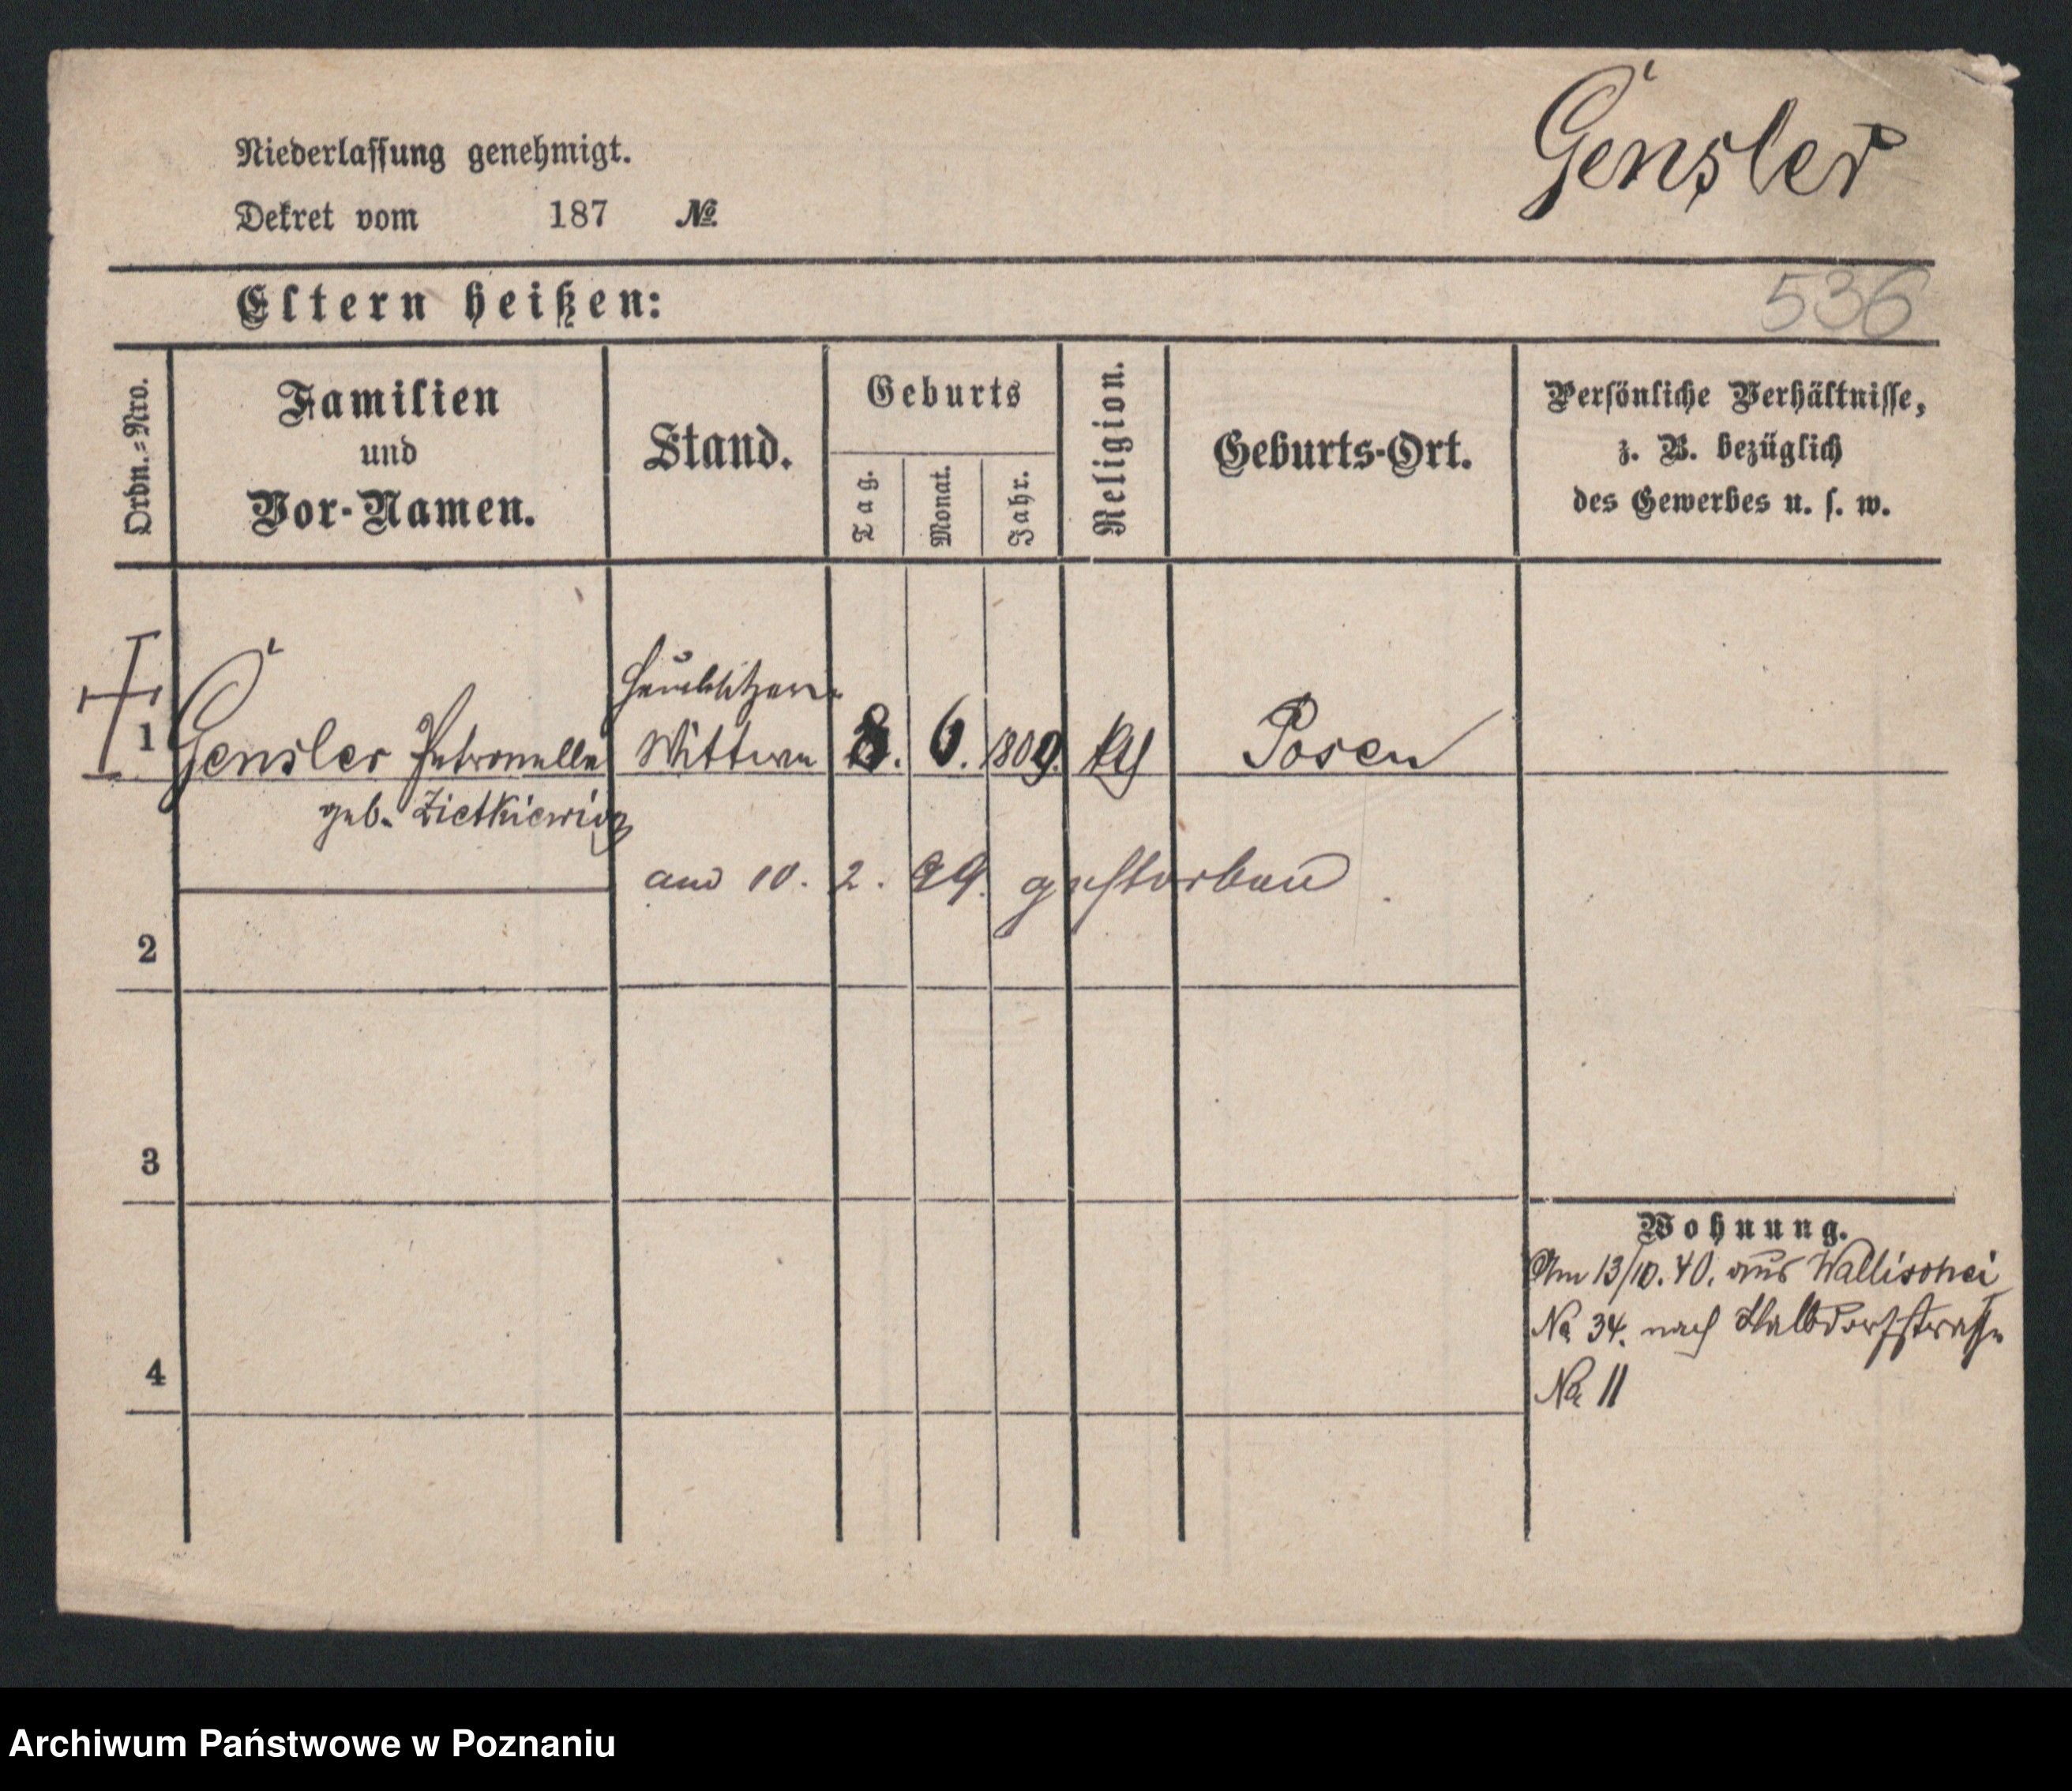 Gensler
Niederlassung genehmigt.
Dekret vom 187 №
Eltern heißen:
536
Ordn.=Nro.
Familien
und
Vor-Namen.
Stand.
Geburts
Tag.
Monat.
Jahr.
Religion.
Geburts-Ort.
Persönliche Verhältnisse,
z. B. bezüglich
des Gewerbes u. s. w.
1 Gensler Petronella Wittwe 8. 6. 1809. kth Posen
geb. Zietkiewicz
am 10. 2. gestorben
2
3
4
Wohnung.
Am 13/10. 40. aus Wallischei
No 34. nach Halbdorfstraße
No 11
Archiwum Państwowe w Poznaniu